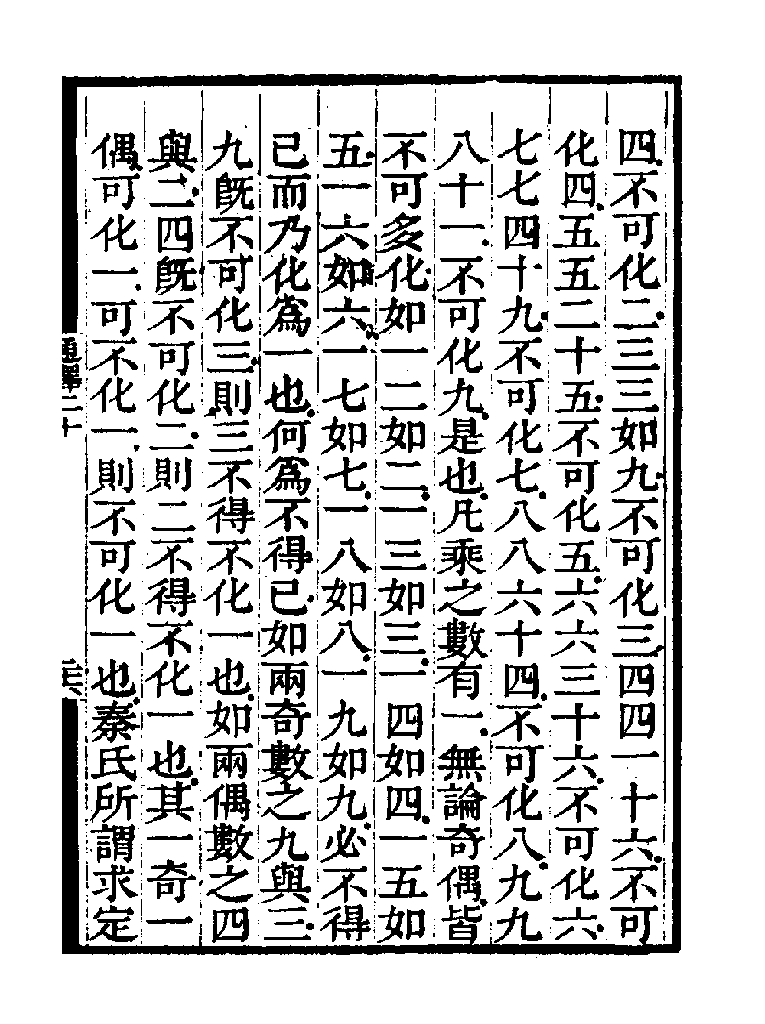 四不可化二三三如九不可化三四四一十六不可
化四五五二十五不可化五六六三十六不可化六
七七四十九不可化七八八六十四不可化八九九
八十一不可化九是也凡乘之數有一無論奇偶皆
不可多化如一二如二一三如三一四如四一五如
五一六如六一七如七一八如八一九如九必不得
已而乃化爲一也何爲不得已如兩奇數之九與三
九旣不可化三則三不得不化一也如兩偶數之四
與二四旣不可化二則二不得不化一也其一奇一
偶可化一可不化一則不可化一也秦氏所謂求定
通釋二十